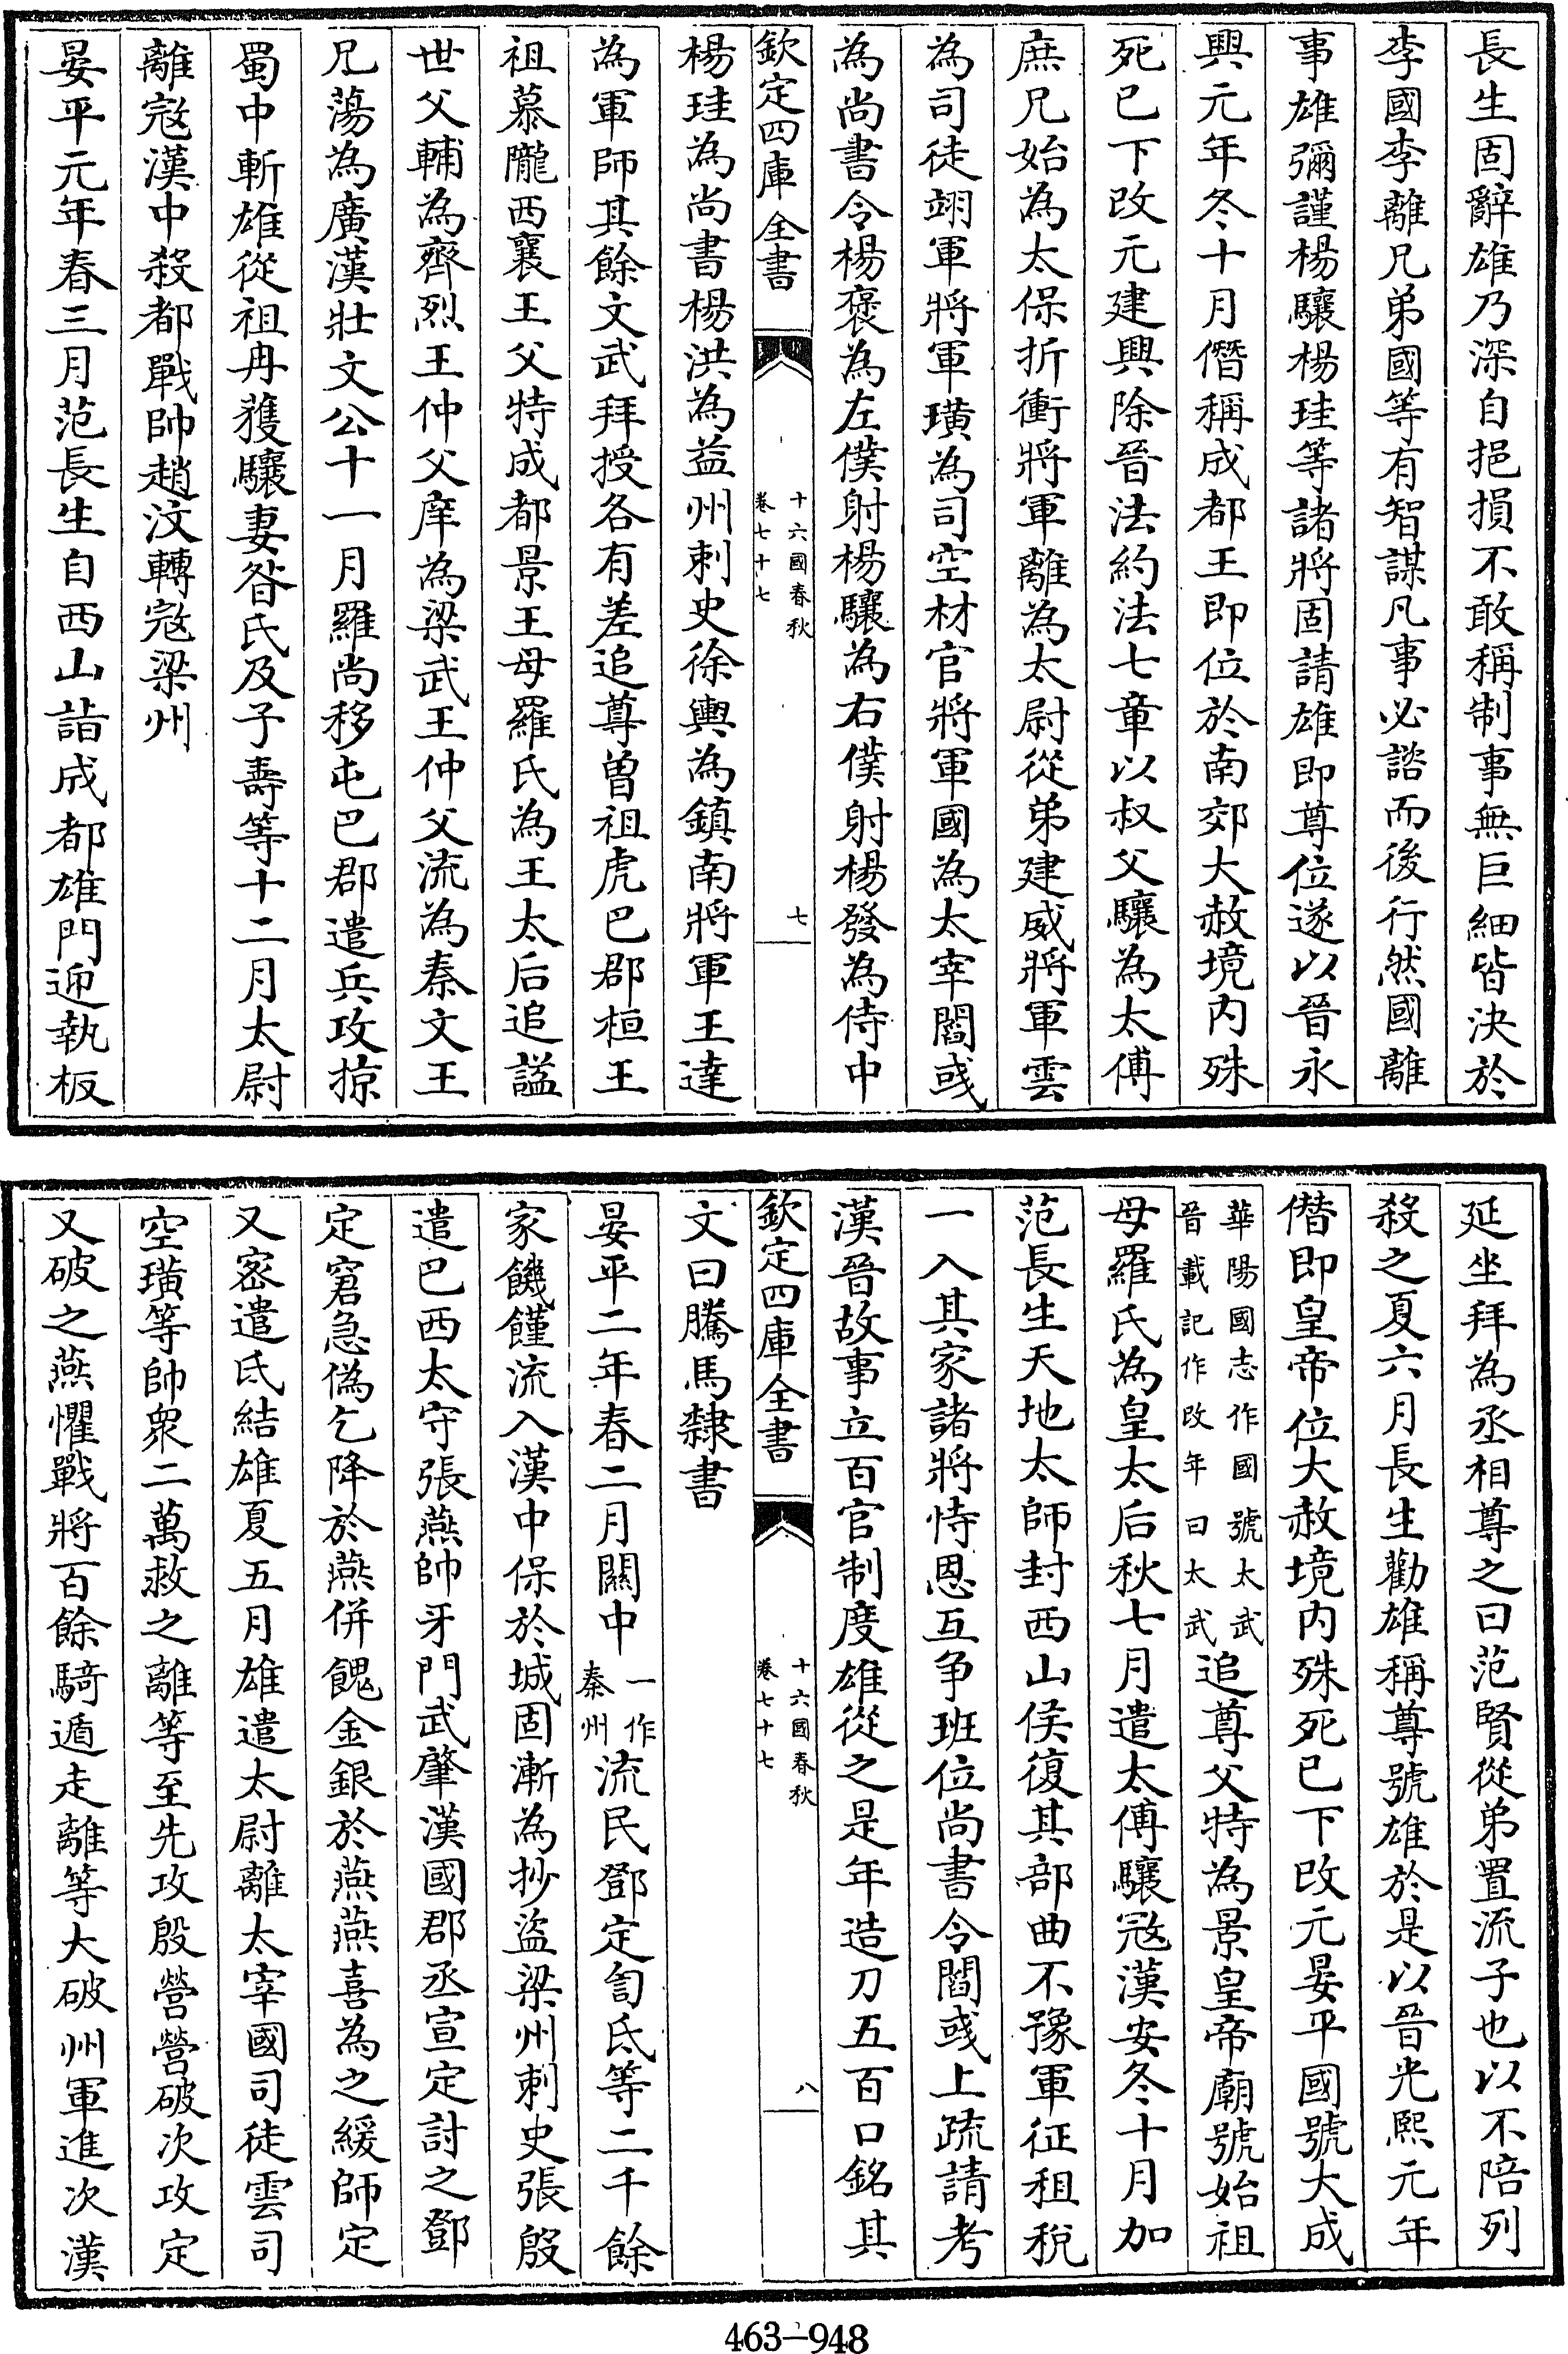 長生固辭雄乃深自挹損不敢稱制事無巨細皆決於
李國李離兄弟國等有智謀凡事必諮而後行然國離
事雄彌謹楊驤楊珪等諸將固請雄即尊位遂以晉永
興元年冬十月僭稱成都王即位於南郊大赦境內殊
死已下改元建興除晉法約法七章以叔父驤為太傅
庶兄始為太保折衝將軍離為太尉從弟建威將軍雲
為司徒翊軍將軍璜為司空材官將軍國為太宰閻彧
為尚書令楊褒為左僕射楊驤為右僕射楊發為侍中
欽定四庫全書
十六國春秋
卷七十七
七
楊珪為尚書楊洪為益州刺史徐輿為鎮南將軍王達
為軍師其餘文武拜授各有差追尊曾祖虎巴郡桓王
祖慕隴西襄王父特成都景王母羅氏為王太后追諡
世父輔為齊烈王仲父庠為梁武王仲父流為秦文王
兄蕩為廣漢壯文公十一月羅尚移屯巴郡遣兵攻掠
蜀中斬雄從祖冉獲驤妻昝氏及子壽等十二月太尉
離宼漢中殺都戰帥趙汶轉宼梁州
晏平元年春三月范長生自西山詣成都雄門迎執板
延坐拜為丞相尊之曰范賢從弟置流子也以不陪列
殺之夏六月長生勸雄稱尊號雄於是以晉光熙元年
僭即皇帝位大赦境内殊死已下改元晏平國號大成
華陽國志作國號太武
晉載記作改年曰太武
追尊父特為景皇帝廟號始祖
母羅氏為皇太后秋七月遣太傅驤宼漢安冬十月加
范長生天地太師封西山侯復其部曲不豫軍征租稅
一入其家諸將恃恩互争班位尚書令閻彧上疏請考
漢晉故事立百官制度雄從之是年造刀五百口銘其
欽定四庫全書
十六國春秋
卷七十七
八
文曰騰馬隸書
晏平二年春二月關中
一作
秦州
流民鄧定訇氐等二千餘
家饑饉流入漢中保於城固漸為抄盜梁州刺史張殷
遣巴西太守張燕帥牙門武肇漢國郡丞宣定討之鄧
定窘急偽乞降於燕併餽金銀於燕燕喜為之緩師定
又密遣氐結雄夏五月雄遣太尉離太宰國司徒雲司
空璜等帥衆二萬救之離等至先攻殷營營破次攻定
又破之燕懼戰將百餘騎遁走離等大破州軍進次漢
463-948